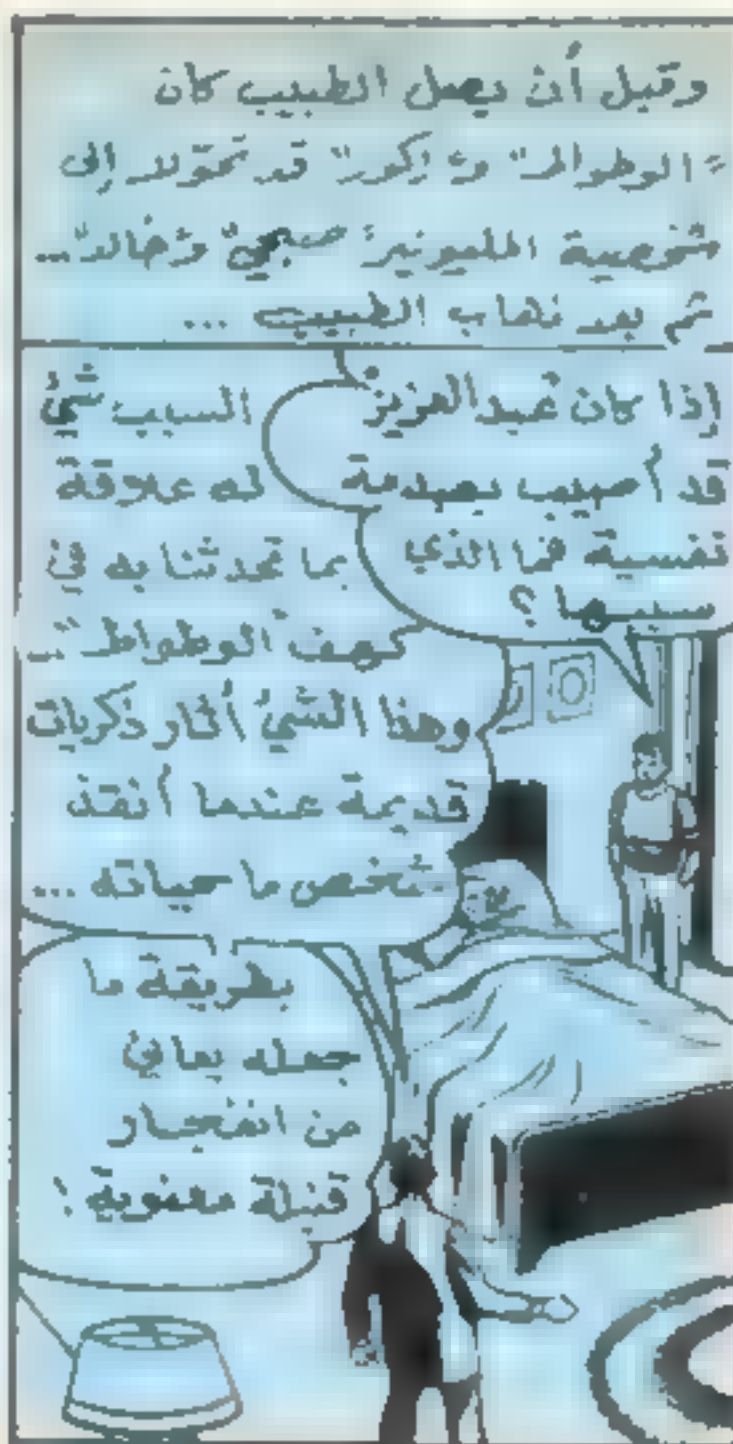 وقبل أن يصل الطبيب كان
"الوطواط" و"زكور" قد تحولا إلى
شخصية المليونير "صبحي" و"خالد"...
ثم بعد ذهاب الطبيب ...
إذا كان عبد العزيز
قد أصيب بصدمة
نفسية فما الذي
سببها ؟
السبب شيء
له علاقة
بما تحدثنا به في
كهف "الوطواط"...
وهذا الشيء أثار ذكريات
قديمة عندما أنقذ
شخص ما حياته ...
بطريقة ما
جعله يعاني
من انفجار
قنبلة معنوية !